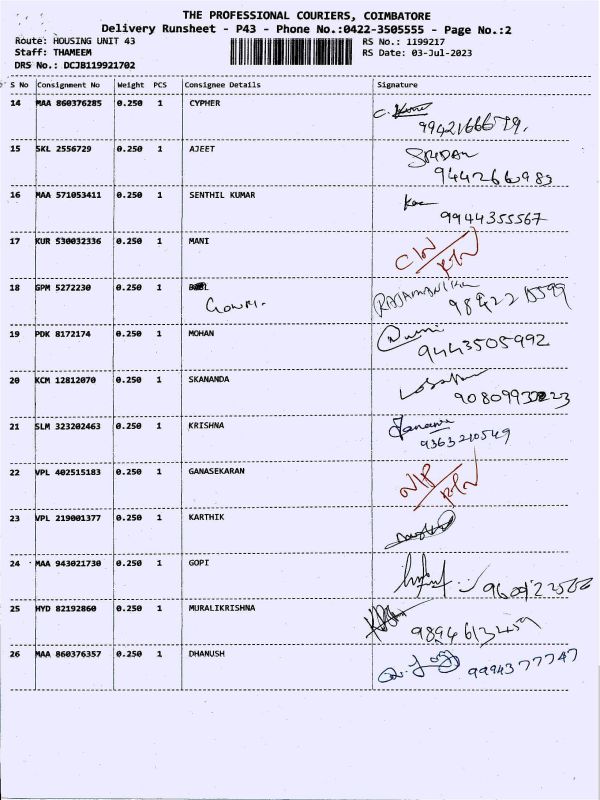 THE PROFESSIONAL COURIERS, COIMBATORE
Delivery Runsheet - P43 - Phone No.:0422-3505555 - Page No.:2
Route: HOUSING UNIT 43 RS No.: 1199217
Staff: THAMEEM RS Date: 03-Jul-2023
DRS No.: DCJB119921702
S No Consignment No Weight PCS Consignee Details Signature
14 MAA 860376285 0.250 1 CYPHER
15 SKL 2556729 0.250 1 AJEET SRIDAR
9442666983
16 MAA 571053411 0.250 1 SENTHIL KUMAR
9944355567
17 KUR 530032336 0.250 1 MANI
18 GPM 5272230 0.250 1
Gowri. 
19 PDK 8172174 0.250 1 MOHAN
9443505992
20 KCM 12812070 0.250 1 SKANANDA
21 SLM 323202463 0.250 1 KRISHNA
9363210549
22 VPL 402515183 0.250 1 GANASEKARAN
23 VPL 219001377 0.250 1 KARTHIK
24 MAA 943021730 0.250 1 GOPI
25 HYD 82192860 0.250 1 MURALIKRISHNA
9894613459
26 MAA 860376357 0.250 1 DHANUSH 9994377747